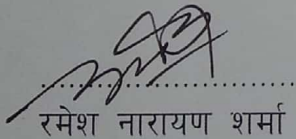 रमेश नारायण शर्मा